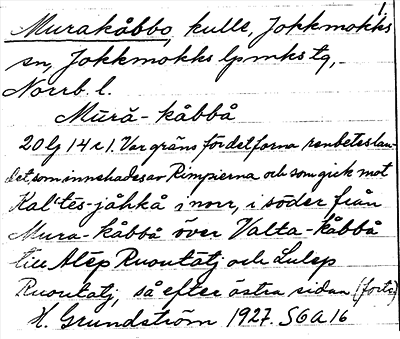 1.
Murakåbbo, kulle, Jokkmokks
sn, Jokkmokks lpmks tg,
Norrb. l.
Mūrā-kåbbå
20 lg 14 c 1. Var gräns för det forna renbeteslan-
det som innehades av Rimpierna och som gick mot
Kal'tes-jåhkå i norr, i söder från
Mura-kåbbå över Valta-kåbbå
till Alēp Ruoutatj och Lulep
Ruoutatj, så efter östra sidan (forts)
H. Grundström 1927. S6A16